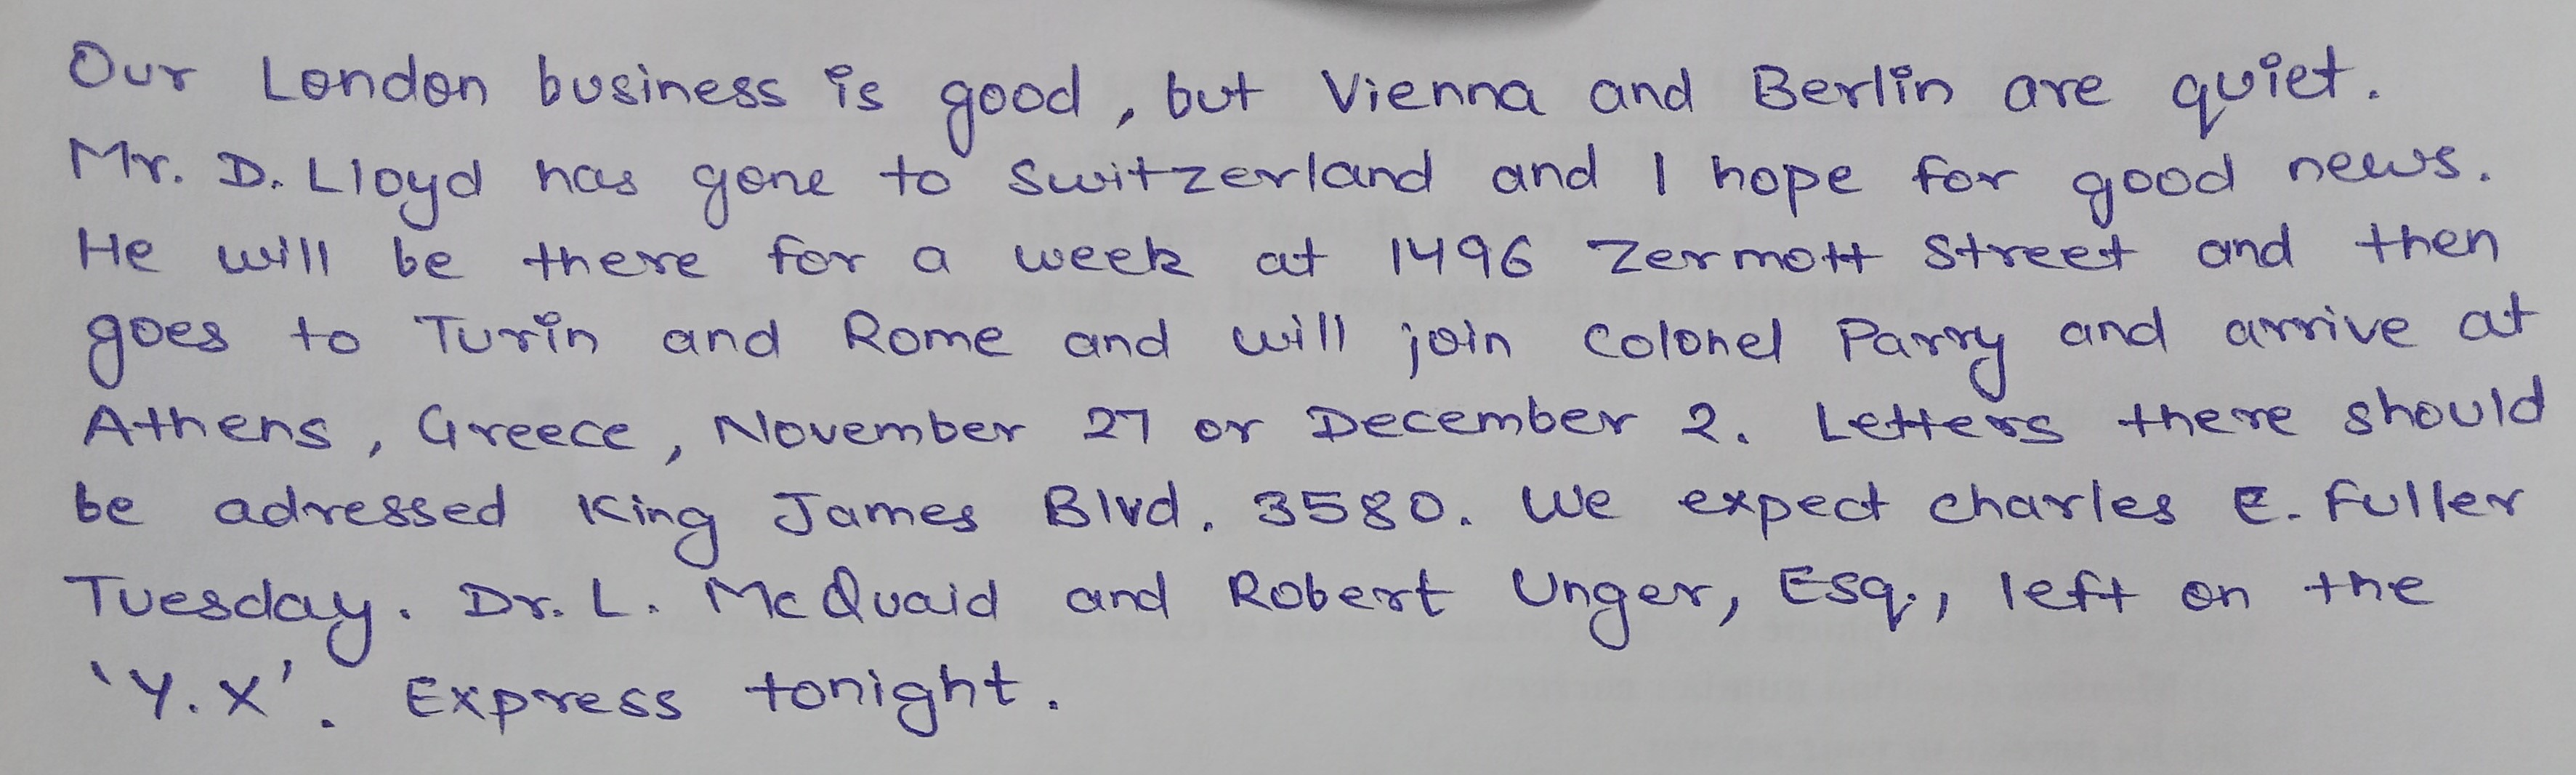 Our London business is good, but Vienna and Berlin are quiet.
Mr. D. Lloyd has gone to Switzerland and I hope for good news.
He will be there for a week at 1496 Zermott Street and then
goes to Turin and Rome and will join Colonel Parry and arrive at
Athens, Greece, November 27 or December 2. Letters there should
be adressed King James Blvd. 3580. We expect Charles E. Fuller
Tuesday. Dr. L. McQuaid and Robert Unger, Esq., left on the
'Y.X'. Express tonight.